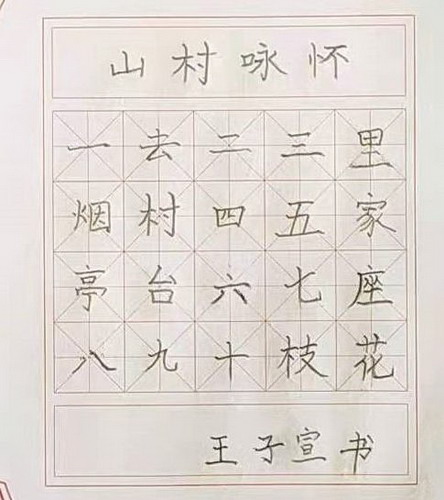 山村咏怀
一去二三里
烟村四五家
亭台六七座
八九十枝花
王子宣书